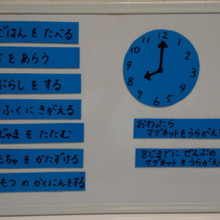 ごはん を たべる
を あらう
ぶらし を する
ふくに きがえる
じゃま を たたむ
ちゃ を かたずける
もつ の かくにんをする
12
1
2
3
4
5
6
7
8
9
10
11
おわったら
マグネットをうらがえ
8じまでに ぜんぶの
マグネットを うらがえ